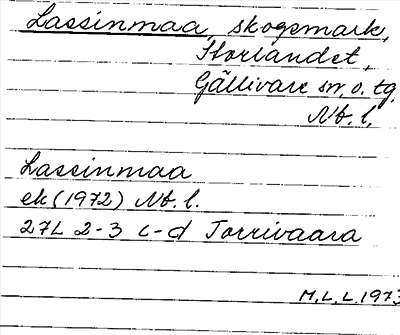 Lassinmaa, skogsmark,
Storlandet,
Gällivare sn, o. tg,
Nb. l.
Lassinmaa
ek (1972) Nb. l.
27L 2-3 c-d Torrivaara
M.L.L. 1973